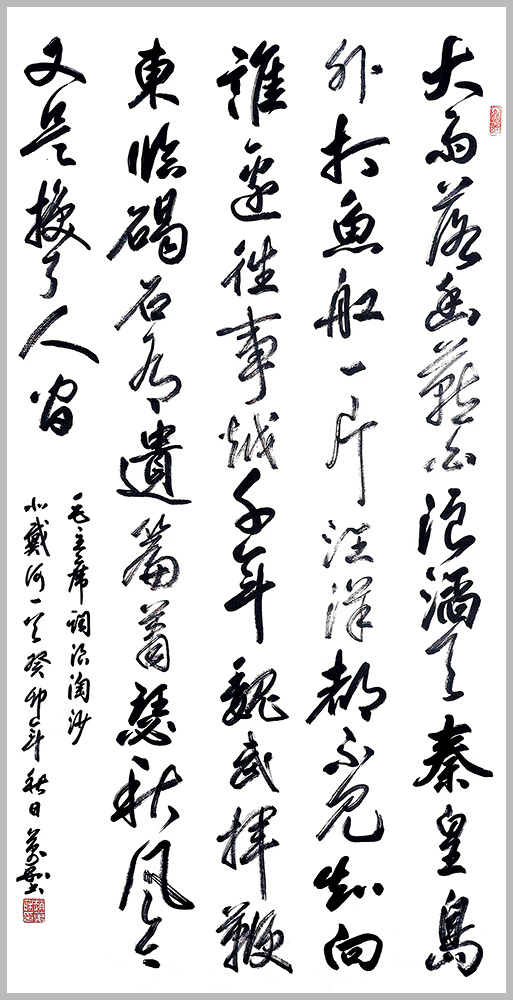 大雨落幽燕白浪滔天秦皇島
外打魚船一片汪洋都不見知向
誰邊往事越千年魏武揮鞭
東臨碣石有遺篇蕭瑟秋風今
又是換了人間
毛主席詞浪淘沙
北戴河一首癸卯年秋日